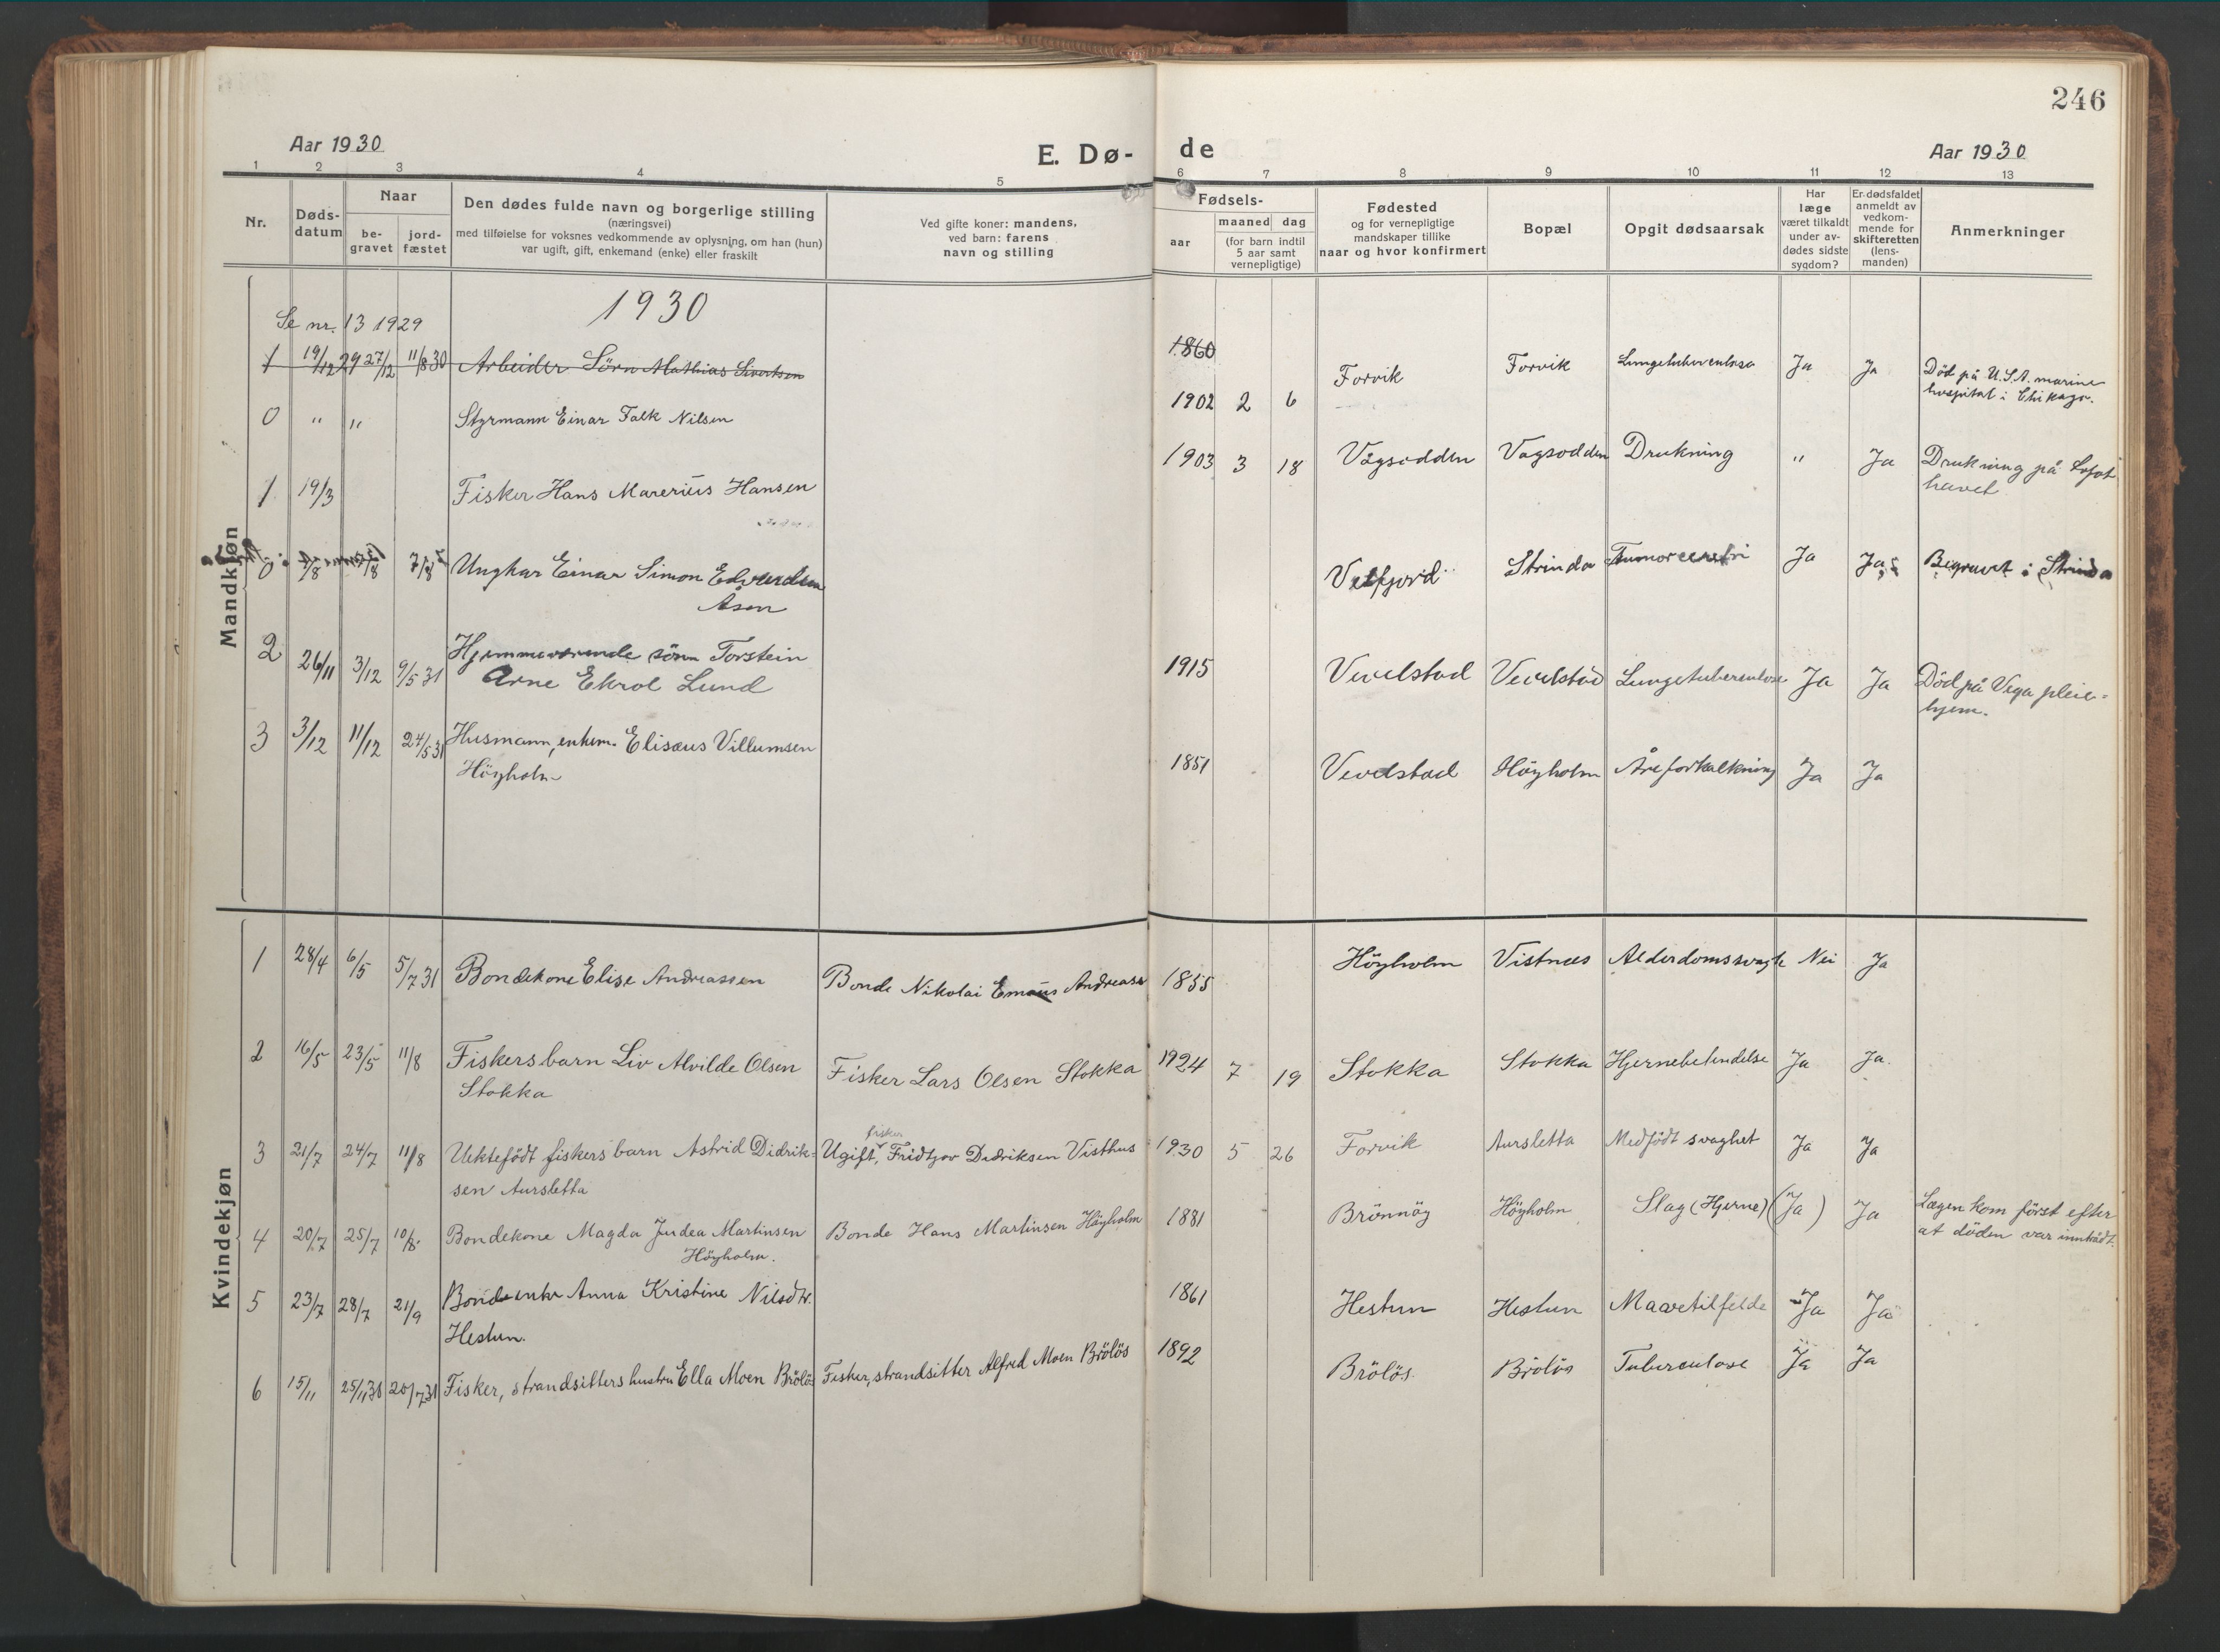 246
Aar 1930
E. Dø-
de
Aar 1930
1 2 3 4 5 6 7 8 9 10 11 12 13
Nr.
Døds-
datum
Naar
be-
gravet
jord-
fæstet
Den dødes fulde navn og borgerlige stilling
(næringsvei)
med tilføielse for voksnes vedkommende av oplysning, om han (hun)
var ugift, gift, enkemand (enke) eller fraskilt
Ved gifte koner: mandens,
ved barn: farens
navn og stilling
Fødsels-
aar
maaned dag
(for barn indtil
5 aar samt
vernepligtige)
Fødested
og for vernepligtige
mandskaper tillike
naar og hvor konfirmert
Bopæl
Opgit dødsaarsak
Har
læge
været tilkaldt
under av-
dødes sidste
sygdom?
Er dødsfaldet
anmeldt av
vedkom-
mende for
skifteretten
(lens-
manden)
Anmerkninger
Mandkjøn
1930
Se nr. 13 1929
1 19/12 29 27/12 11/8 30 Arbeider Sörn Mathias Sivertsen 1860
0 " " Styrmann Einar Falk Nilsen 1902 2 6 Forvik Forvik Lungetuberculose Ja Ja Död på U.S.A. marine
hospital i Chikago.
1 19/3 Fisker Hans Marerius Hansen 1903 3 18 Vågsodden Vagsodden Drukning " Ja Drukning på Lofot
havet
0 7/8 Ungkar Einar Simon Edvardsen
Åsen
Velfjord Strinda Ja Ja Begravet i Strinda
2 26/11 3/12 9/5 31 Hjemmeværende sönn Torstein
Arne Ekrol Lund
1915 Vevelstad Vevelstad Lungetuberculose Ja Ja Död på Vega pleie-
hjem.
3 3/12 11/12 24/5 31 Husmann, enkem. Elisæus Villumsen
Höyholm
1851 Vevelstad Höyholm Åreforkalkning Ja Ja
Kvindekjøn
1 28/4 6/5 5/7 31 Bondekone Elise Andreassen Bonde Nikolai Emaus Andreass 1855 Höyholm Vistnes Alderdomssvagh Nei Ja
2 16/5 23/5 11/8 Fiskersbarn Liv Alvilde Olsen
Stokka
Fisker Lars Olsen Stokka 1924 7 19 Stokka Stokka Hjernebetendelse Ja Ja.
3 21/7 24/7 11/8 Uektefödt fiskersbarn Astrid Didrik-
sen Aursletta
fisker
Ugift, Fridtjov Didriksen Visthus 1930 5 26 Forvik Aursletta Medfödt svaghet Ja Ja
4 20/7 25/7 10/8 Bondekone Magda Judea Martinsen
Höyholm.
Bonde Hans Martinsen Höyholm 1881 Brönnöy Höyholm Slag (Hjerne) (Ja) Ja Lægen kom först efter
at döden var inntrådt.
5 23/7 28/7 21/9 Bondeenke Anna Kristine Nilsdtr.
Hestun.
1861 Hestun Hestun Mavetilfelde Ja Ja
6 15/11 25/11 30 20/7 31 Fisker, strandsitters hustru Ella Moen Brölös Fisker, strandsitter Alfred Moen Brölös 1892 Brölös. Brölös Tuberculose Ja Ja